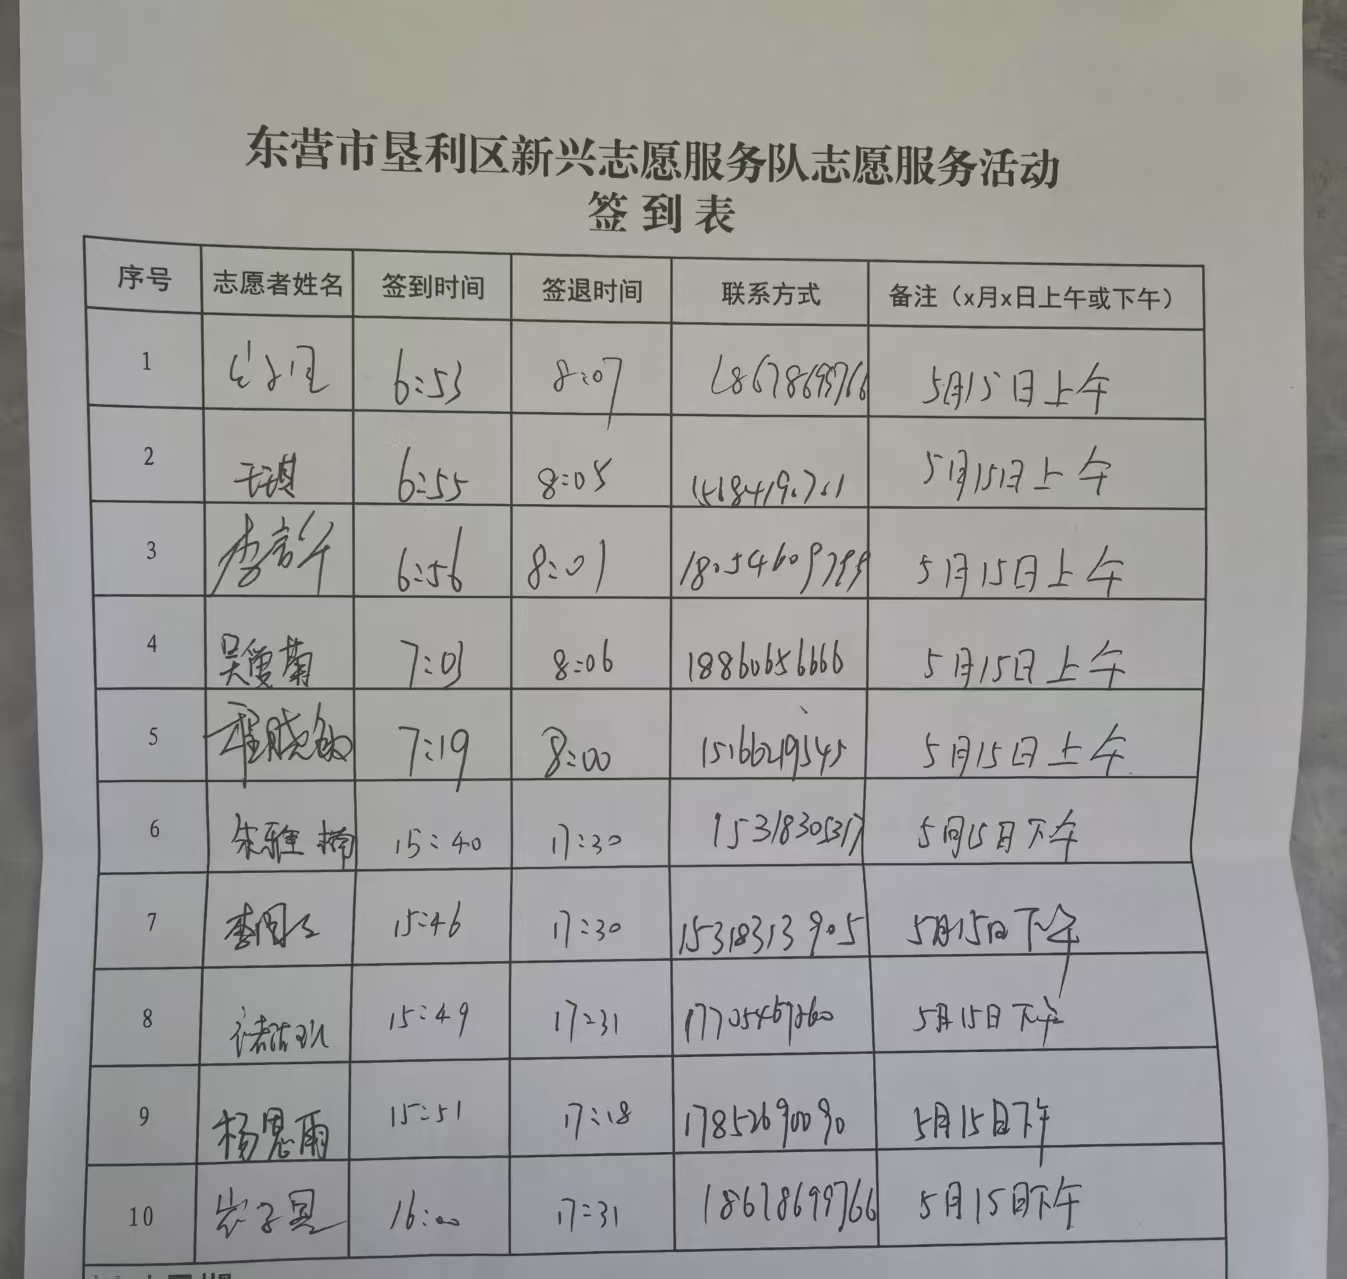 东营市垦利区新兴志愿服务队志愿服务活动
签到表
序号 志愿者姓名 签到时间 签退时间 联系方式 备注（x月x日上午或下午）
1 6:53 8:07 18678699766 5月15日上午
2 6:55 8:05 5月15日上午
3 6:56 8:01 5月15日上午
4 7:03 8:06 18860656666 5月15日上午
5 程晓敏 7:19 8:00 15166219545 5月15日上午
6 朱雅楠 15:40 17:30 15318305317 5月15日下午
7 15:46 17:30 15318313905 5月15日下午
8 15:49 17:31 5月15日下午
9 杨思雨 15:51 17:18 17852690090 5月15日下午
10 16:00 17:31 18678699766 5月15日下午